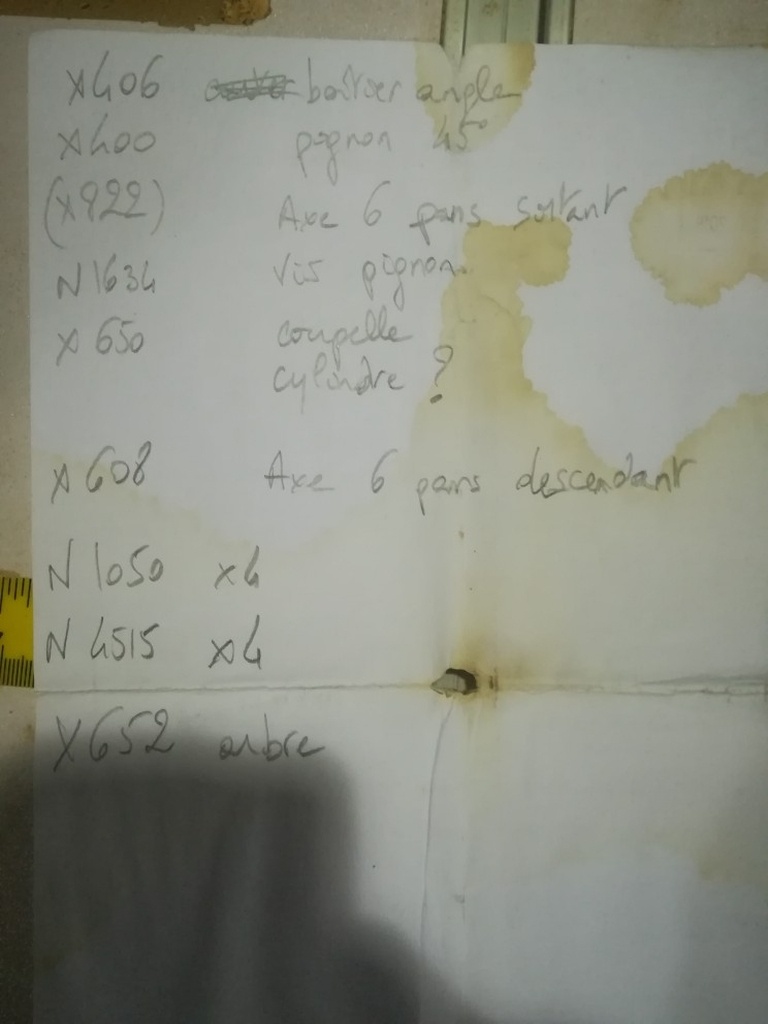 X406 boîtier angle
X400 pignon 45°
(X922) Axe 6 pans sortant
N1634 Vis pignon
X650 coupelle
cylindre ?
X608 Axe 6 pans descendant
N1050 x4
N4515 x4
X652 arbre